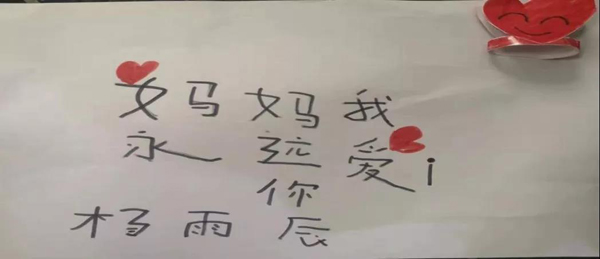 妈妈我
永远爱i
你
杨雨辰